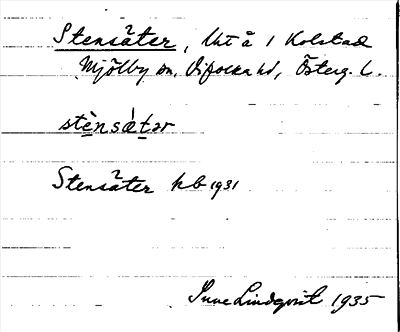 Stensäter, Uht å 1 Kolstad
Mjölby sn, Vifolka hd, Österg. l.
stènsàtər
Stensäter kb 1931
Sune Lindqvist 1935